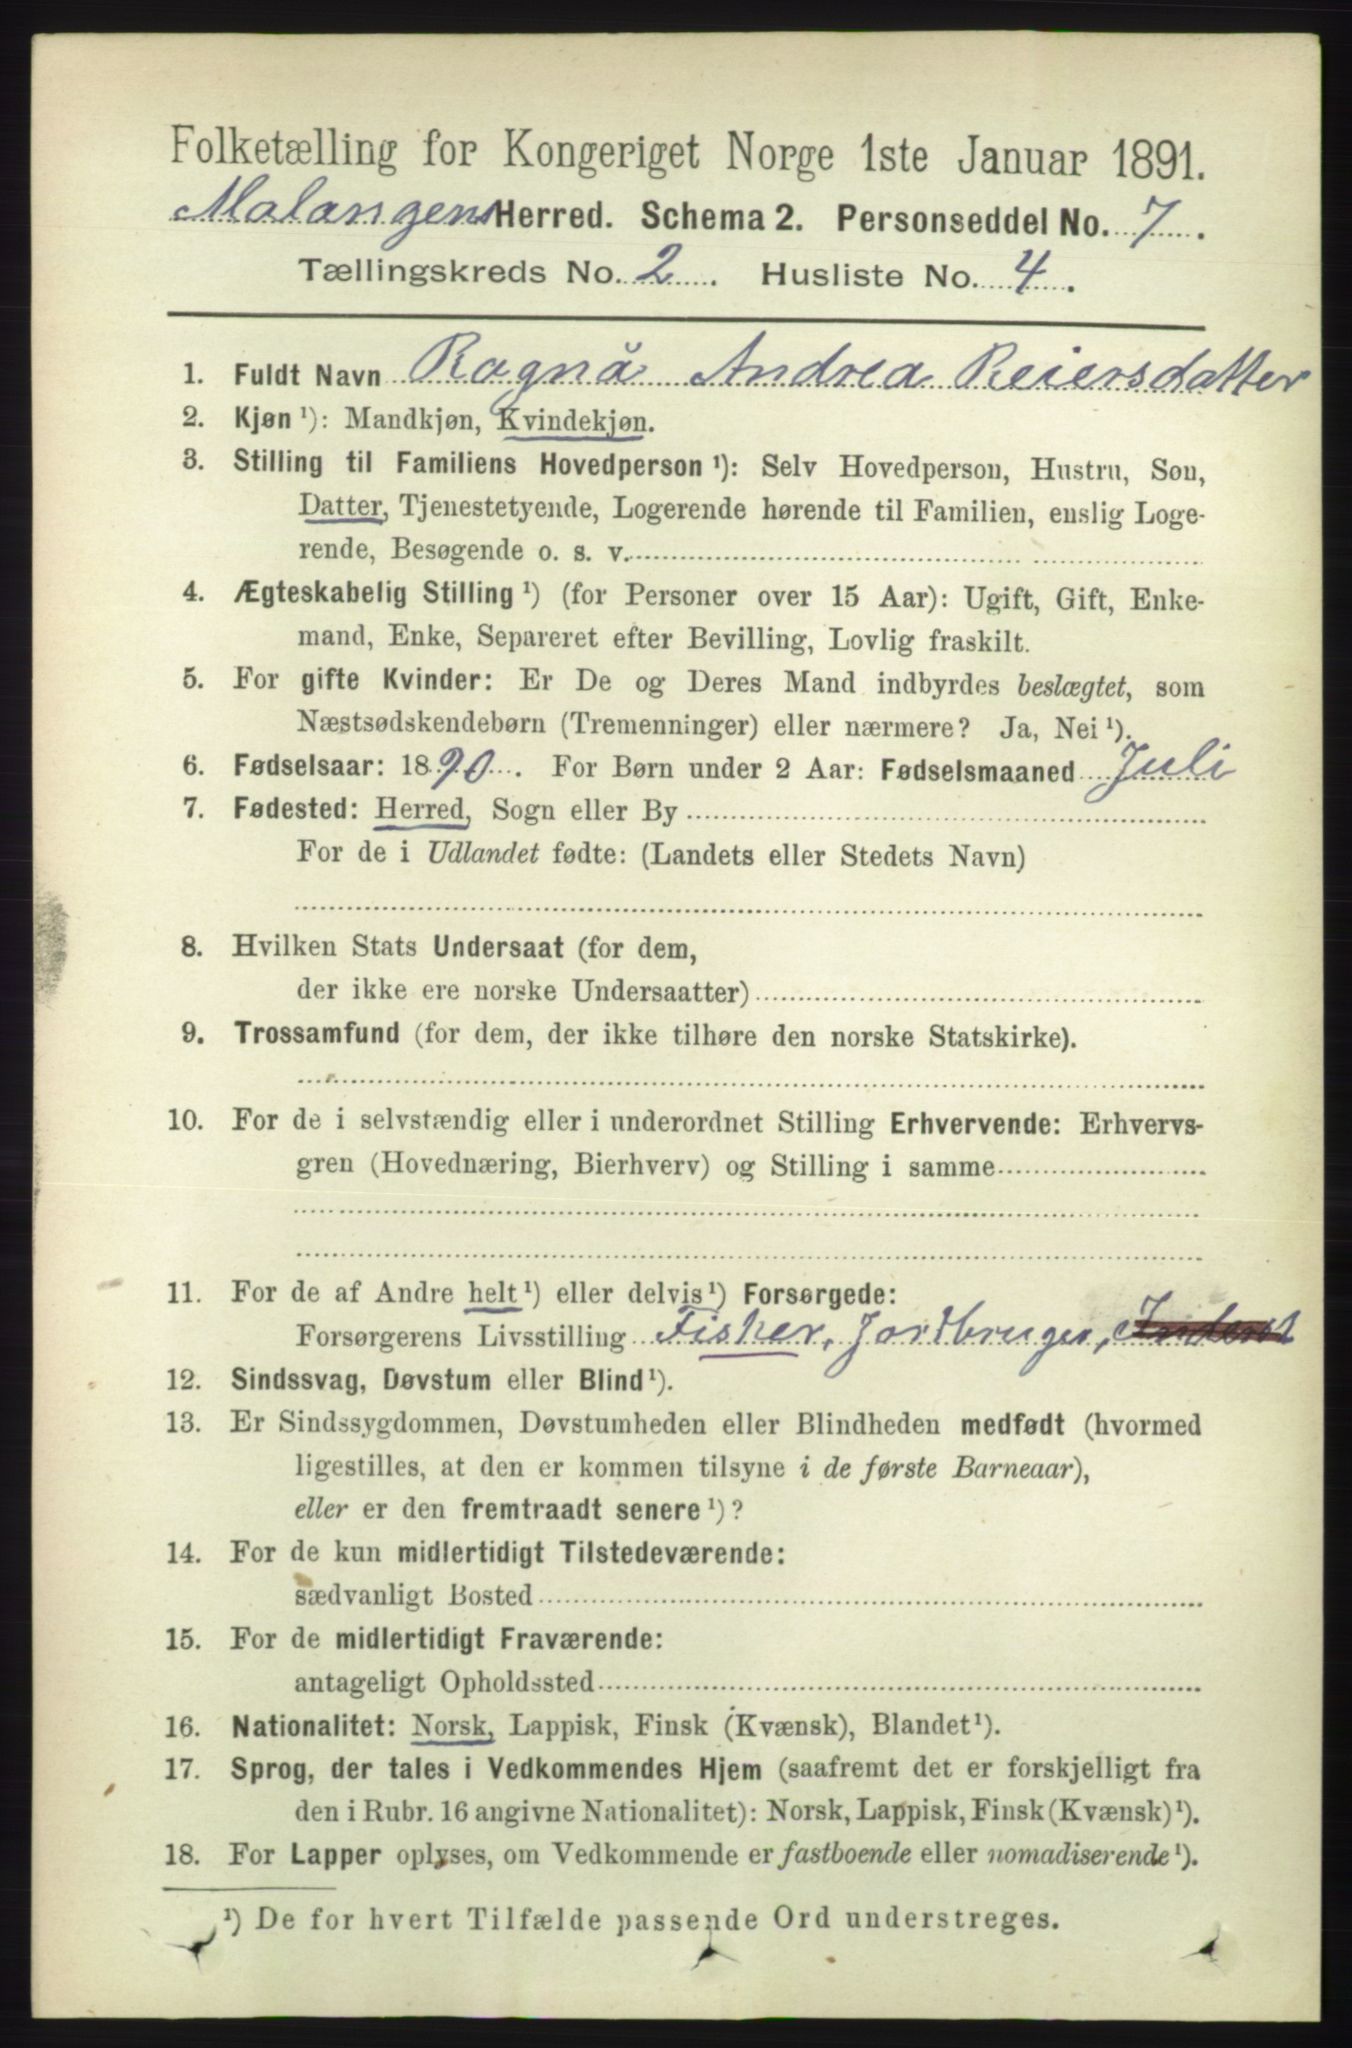 Folketælling for Kongeriget Norge 1ste Januar 1891.
Malangens Herred. Schema 2. Personseddel No. 7.
Tællingskreds No. 2. Husliste No. 4.
1. Fuldt Navn Ragna Andrea Reiersdatter
2. Kjøn ¹): Mandkjøn, Kvindekjøn.
3. Stilling til Familiens Hovedperson ¹): Selv Hovedperson, Hustru, Søn,
Datter, Tjenestetyende, Logerende hørende til Familien, enslig Loge-
rende, Besøgende o. s. v.
4. Ægteskabelig Stilling ¹) (for Personer over 15 Aar): Ugift, Gift, Enke-
mand, Enke, Separeret efter Bevilling, Lovlig fraskilt.
5. For gifte Kvinder: Er De og Deres Mand indbyrdes beslægtet, som
Næstsødskendebørn (Tremenninger) eller nærmere? Ja, Nei ¹).
6. Fødselsaar: 1890. For Børn under 2 Aar: Fødselsmaaned Juli
7. Fødested: Herred, Sogn eller By
For de i Udlandet fødte: (Landets eller Stedets Navn)
8. Hvilken Stats Undersaat (for dem,
der ikke ere norske Undersaatter)
9. Trossamfund (for dem, der ikke tilhøre den norske Statskirke).
10. For de i selvstændig eller i underordnet Stilling Erhvervende: Erhvervs-
gren (Hovednæring, Bierhverv) og Stilling i samme
11. For de af Andre helt ¹) eller delvis ¹) Forsørgede:
Forsørgerens Livsstilling Fisker, Jordbruger, Inderst
12. Sindssvag, Døvstum eller Blind ¹).
13. Er Sindssygdommen, Døvstumheden eller Blindheden medfødt (hvormed
ligestilles, at den er kommen tilsyne i de første Barneaar),
eller er den fremtraadt senere ¹)?
14. For de kun midlertidigt Tilstedeværende:
sædvanligt Bosted
15. For de midlertidigt Fraværende:
antageligt Opholdssted
16. Nationalitet: Norsk, Lappisk, Finsk (Kvænsk), Blandet ¹).
17. Sprog, der tales i Vedkommendes Hjem (saafremt det er forskjelligt fra
den i Rubr. 16 angivne Nationalitet): Norsk, Lappisk, Finsk (Kvænsk) ¹).
18. For Lapper oplyses, om Vedkommende er fastboende eller nomadiserende ¹).
¹) De for hvert Tilfælde passende Ord understreges.